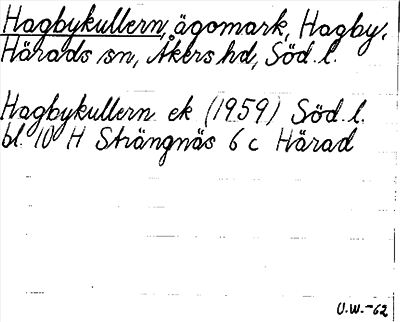 Hagbykullern, ägomark, Hagby,
Härads sn, Åkers hd, Söd. l.
Hagbykullern ek (1959) Söd. l.
bl. 10 H Strängnäs 6 c Härad
U.W.-62